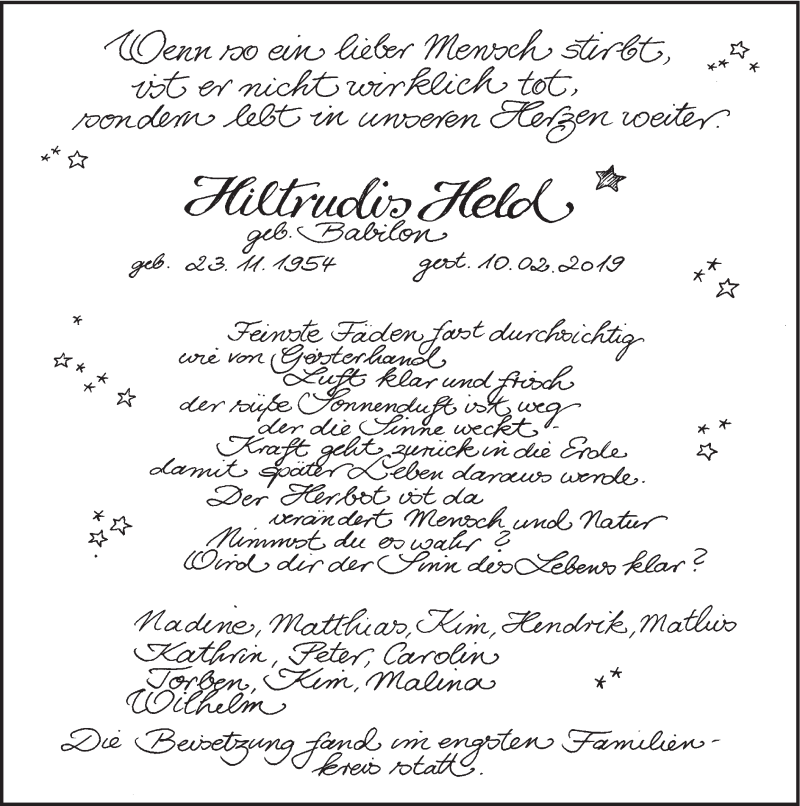 Wenn so ein lieber Mensch stirbt,
ist er nicht wirklich tot,
sondern lebt in unseren Herzen weiter.
Hiltrudis Held
geb. Babilon
geb. 23. 11. 1954 gest. 10.02.2019
Feinste Fäden fast durchsichtig
wie von Geisterhand
Luft klar und frisch
der süße Sonnenduft ist weg
der die Sinne weckt -
Kraft geht zurück in die Erde
damit später Leben daraus werde.
Der Herbst ist da
verändert Mensch und Natur
Nimmst du es wahr ?
Wird dir der Sinn des Lebens klar ?
Nadine, Matthias, Kim, Hendrik, Mathis
Kathrin, Peter, Carolin
Torben, Kim, Malina
Wilhelm
Die Beisetzung fand im engsten Familien-
kreis statt.